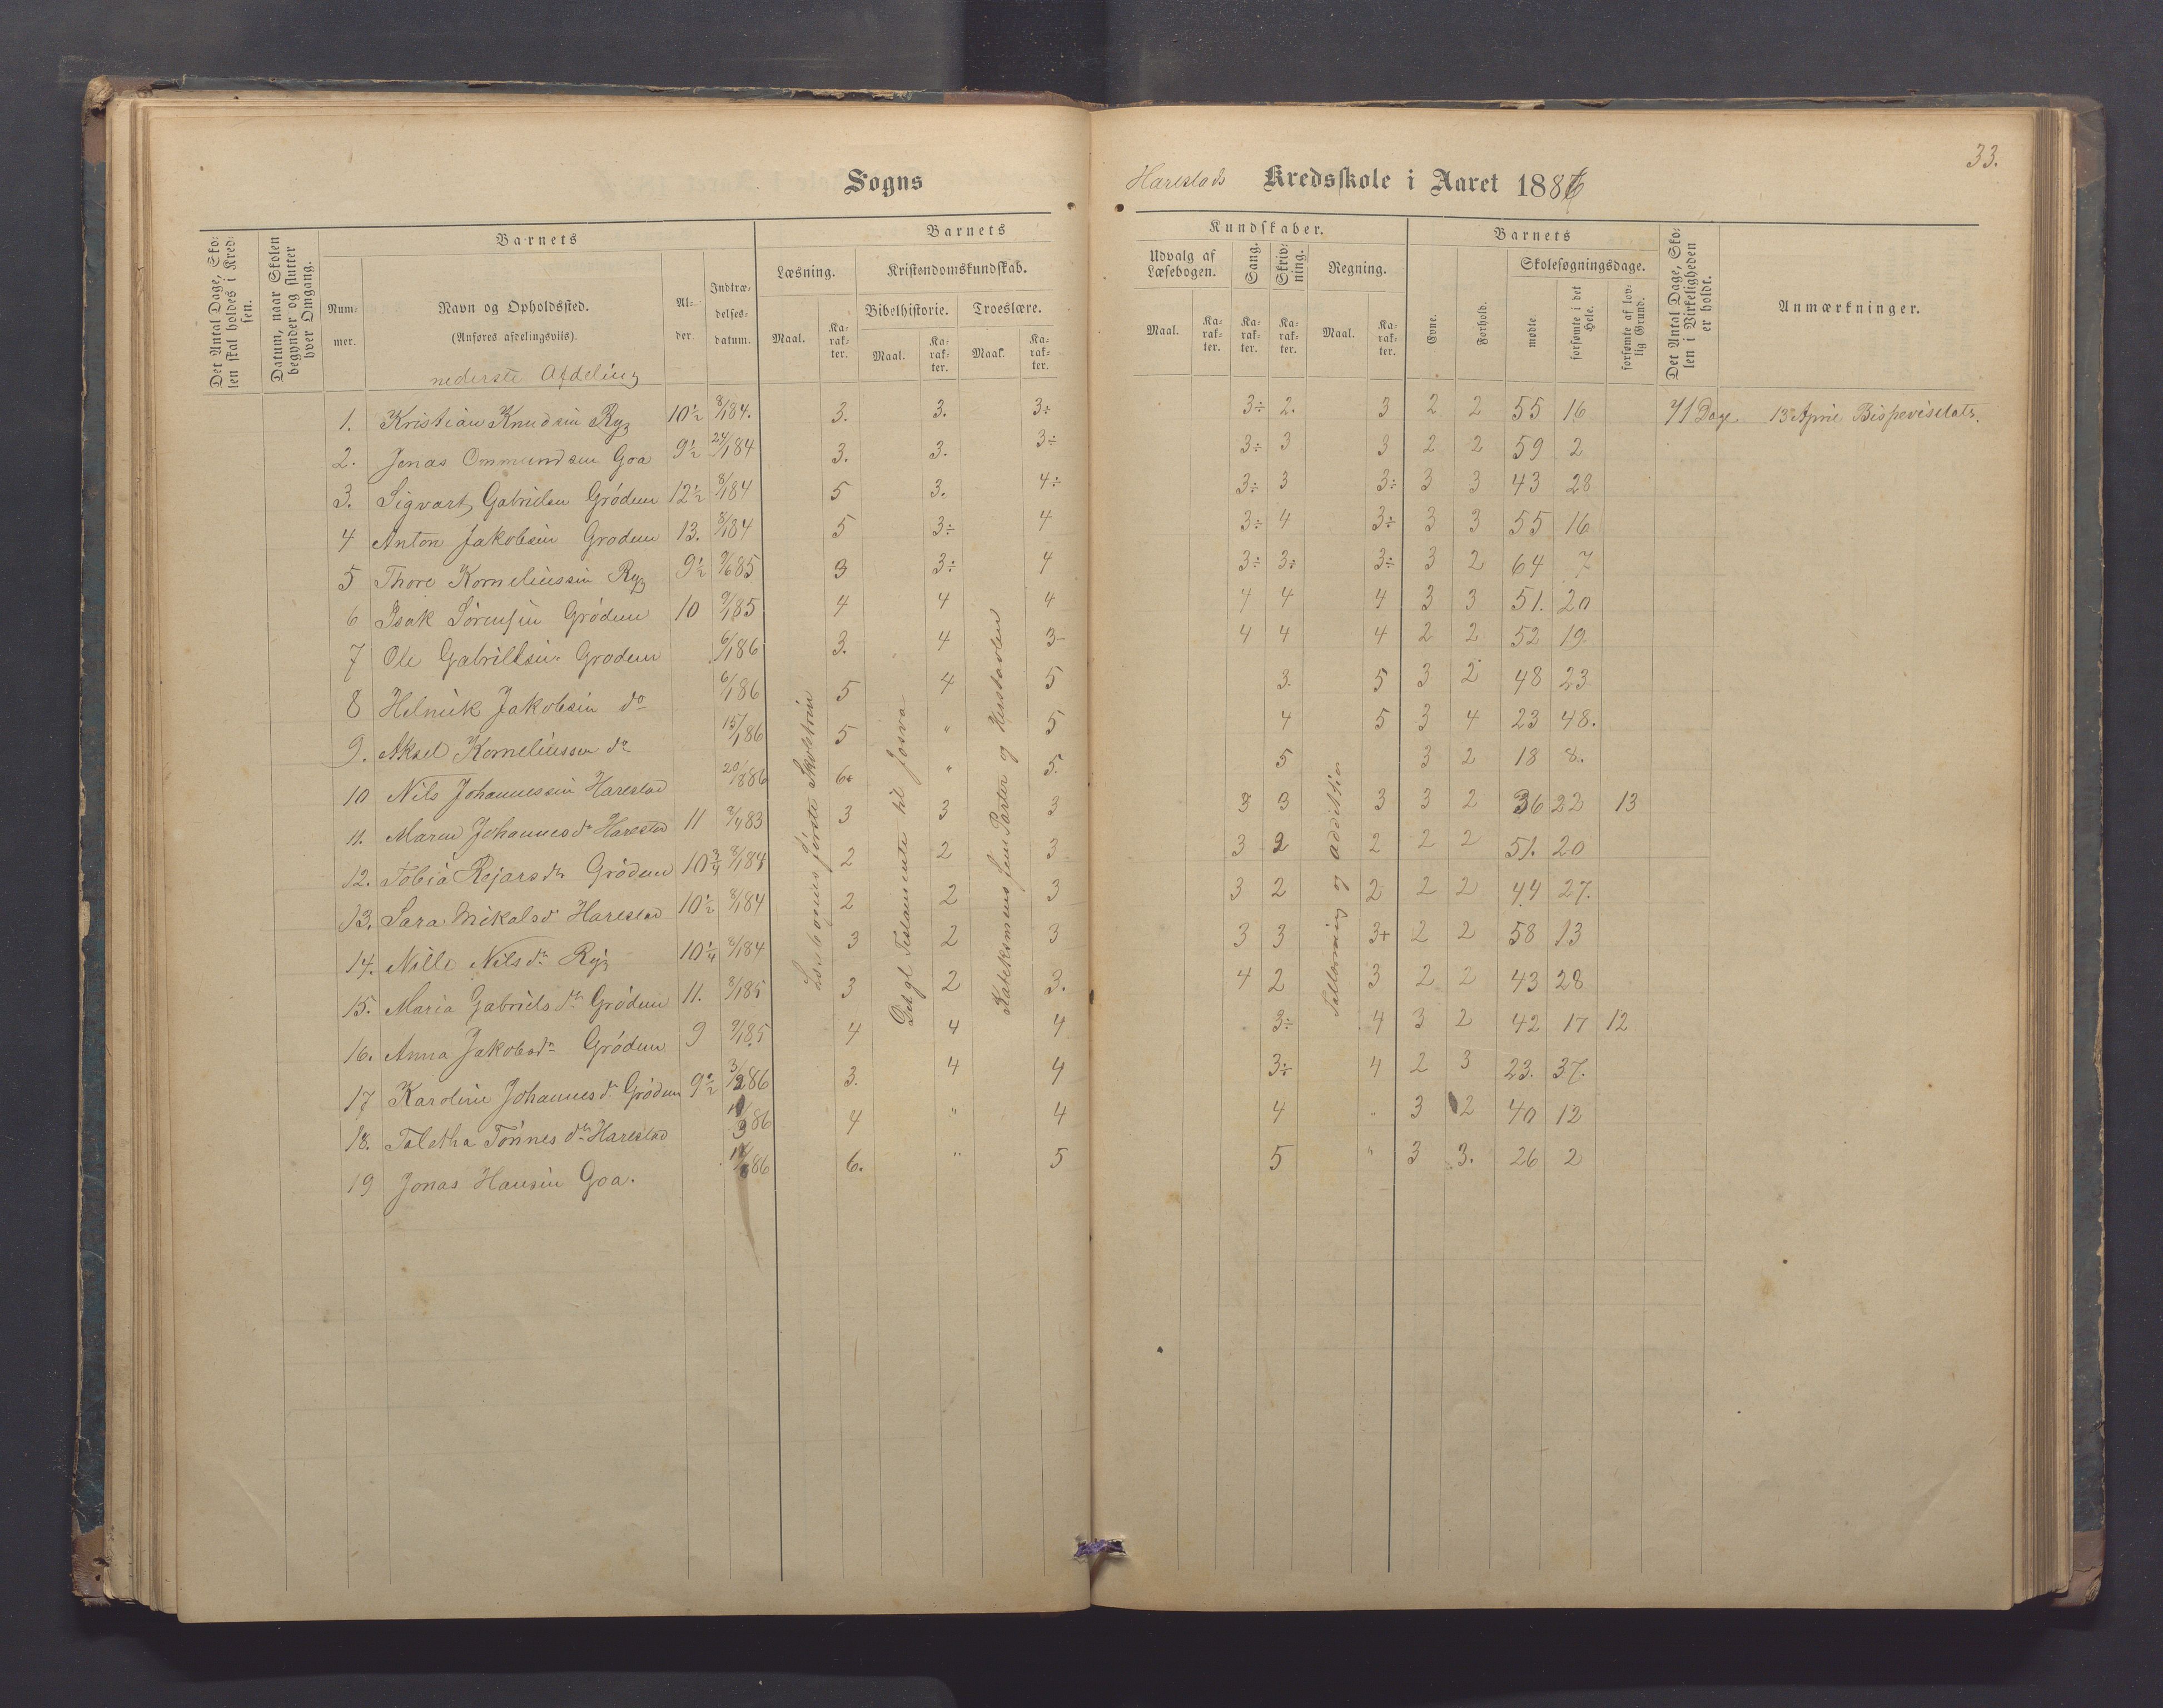 33.
Sogns Harestads Kredsskole i Aaret 1886
Det Antal Dage, Skolen skal holdes i Kredsen.
Datum, naar Skolen begynder og slutter hver Omgang.
Barnets
Nummer.
Navn og Opholdssted.
(Anføres afdelingsviis).
Alder.
Indtrædelsesdatum.
Barnets Kundskaber.
Læsning.
Maal. Karakter.
Kristendomskundskab.
Bibelhistorie. Troeslære.
Maal. Karakter. Maal. Karakter.
Udvalg af Læsebogen.
Maal. Karakter.
Sang. Karakter.
Skrivning. Karakter.
Regning.
Maal. Karakter.
Barnets
Evne. Forhold.
Skolesøgningsdage.
mødte. forsømte i det Hele. forsømte af lovlig Grund.
Det Antal Dage, Skolen i Virkeligheden er holdt.
Anmærkninger.
nederste Afdeling
1. Kristian Knudsen Ryg 10½ 8/1 84. 3. 3. 3÷ 3÷ 2. 3 2 2 55 16 71 Dage 13de April Bispevisitats.
2. Jonas Ommundsen Goa 9½ 24/1 84 3. 3. 3÷ 3÷ 3 3 2 2 59 2
3. Sigvart Gabrielsen Grødem 12½ 8/1 84 5 3. 4÷ 3÷ 3 3÷ 3 3 43 28
4 Anton Jakobsen Grodem 13. 8/1 84 5 3÷ 4 3÷ 4 3÷ 3 3 55 16
5 Thore Korneliussen Ryg 9½ 9/6 85 3 3÷ 4 3÷ 3÷ 3÷ 3 2 64 7
6 Isak Sørensen Grødem 10 9/1 85 4 4 4 4 4 4 3 3 51. 20
7 Ole Gabrielsen Grodem 6/1 86 3. 4 3- 4 4 4 2 2 52 19
8 Helmik Jakobsen do 6/1 86 5 4 5, 3. 5 3 2 48 23
9. Aksel Korneliussen do 15/1 86 5 " 5, 4 5 3 4 23 48.
10 Nils Johannessen Harestad 20/8 86 6. " 5. 5 3 2 18 8.
11. Maren Johannesdr Harestad 11 3 3 3 3 3 3 3 2 36 22 13
12. Tobia Rejarsdr Grödem 10¾ 8/1 84 2 2 3 3 2 2 2 2 51. 20
13. Sara Mikalsd Harestad 10½ 8/1 84 2 2 3 3 2 2 2 2 44 27.
14. Nille Nilsdr Ryg 10¼ 8/1 84 3 2 3 3 3 3+ 2 2 58 13
15. Maria Gabrielsdr Grödem 11. 8/1 85 3 2 3. 4 2 3 2 2 43 28
16. Anna Jakobsdr Grödem 9 9/1 85 4 4 4 3÷ 4 3 2 42 17 12
17 Karoline Johannesdr Grödem 9½ 86 3. 4 4 3÷ 4 2 3 23. 37.
18. Taletha Tönnesdr Harestad 86 4 " 4 4 " 3 2 40 12
19 Jonas Hansen Goa. 86 6. " 5 5 " 3 3. 26 2
Læsebogens første Skoletrin
Det gl Testamente til Josva
Katekismens fem Parter og Husstavlen
Talskrivning og addition